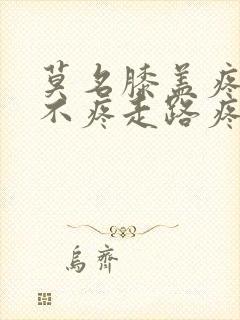 莫名膝盖疼
不疼走路疼
乌齐